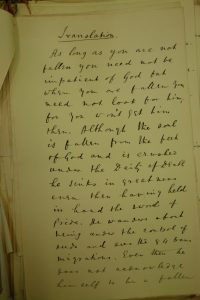 Translation.
As long as you are not
fallen you need not be
impatient of God but
when you are fallen you
need not look for him,
for you won't get him
then. Although the soul
is fallen from the feet
of God and is crushed
under the Deity of Death
he sinks in greatness
even then having held
in hand the sword of
Pride. He wanders about
being under the control of
and over the 84 lacs
migrations. Even then he
does not acknowledge
himself to be a fallen